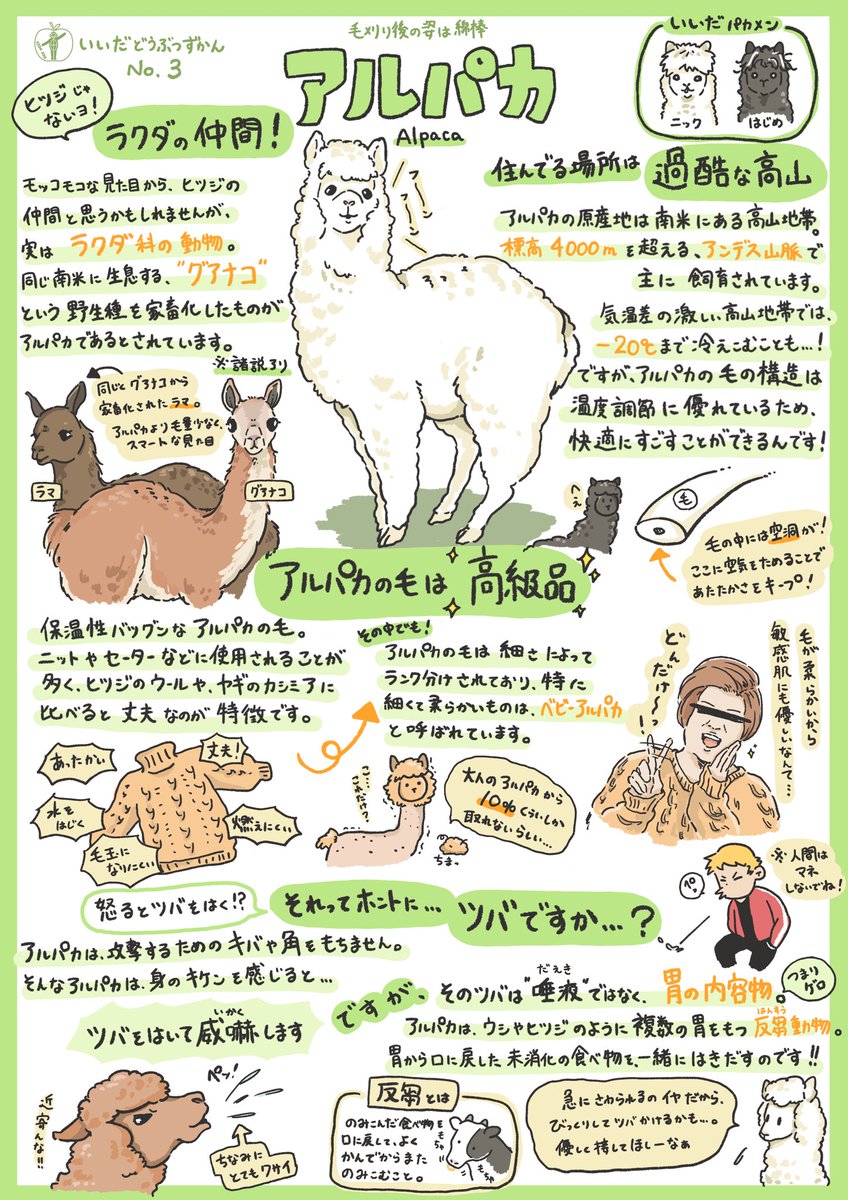 いいだどうぶつずかん
No.3
毛刈り後の姿は綿棒
アルパカ
Alpaca
いいだパカメン
ニック
はじめ
ヒツジじゃ
ないヨ!
ラクダの仲間!
モッコモコな見た目から、ヒツジの
仲間と思うかもしれませんが、
実は ラクダ科の動物。
同じ南米に生息する、"グアナコ"
という野生種を家畜化したものが
アルパカであるとされています。
※諸説アリ
同じくグアナコから
家畜化されたラマ。
アルパカより毛量少なく、
スマートな見た目
ラマ
グアナコ
住んでる場所は
過酷な高山
アルパカの原産地は南米にある高山地帯。
標高4000mを超える、アンデス山脈で
主に飼育されています。
気温差の激しい高山地帯では、
-20℃まで冷えこむことも…!
ですが、アルパカの毛の構造は
温度調節に優れているため、
快適にすごすことができるんです!
へぇ
毛
毛の中には空洞が!
ここに空気をためることで
あたたかさをキープ!
アルパカの毛は 高級品
保温性バツグンなアルパカの毛。
ニットやセーターなどに使用されることが
多く、ヒツジのウールや、ヤギのカシミアに
比べると丈夫なのが特徴です。
あったかい
丈夫!
水を
はじく
燃えにくい
毛玉に
なりにくい
その中でも!
アルパカの毛は細さによって
ランク分けされており、特に
細くて柔らかいものは、ベビーアルパカ
と呼ばれています。
こ…
これだけ?
ちまっ
大人のアルパカから
10%くらいしか
取れないらしい…
どんだけ〜っ!
毛が柔らかいから
敏感肌にも優しいなんて…
怒るとツバをはく!?
それってホントに…
ツバですか…?
ペッ
※人間は
マネ
しないでね!
アルパカは、攻撃するためのキバや角をもちません。
そんなアルパカは、身のキケンを感じると…
いかく
ツバをはいて威嚇します
ペッ!
近寄んな!!
ちなみに
とてもクサイ
ですが、
だえき
そのツバは"唾液"ではなく、胃の内容物。
つまり
ゲロ
はんすう
アルパカは、ウシやヒツジのように複数の胃をもつ反芻動物。
胃から口に戻した未消化の食べ物を、一緒にはきだすのです!!
反芻とは
のみこんだ食べ物を
口に戻して、よく
かんでからまた
のみこむこと。
もちゃ
もちゃ
急にさわられるのイヤだから、
びっくりしてツバかけるかも…。
優しく接してほしーなぁ